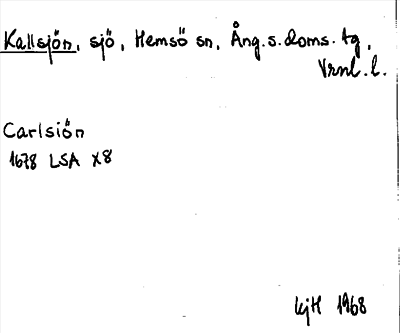 Kallsjön, sjö, Hemsö sn, Ång.s.doms.tg,
Vrnl.l.
Carlsiön
1678 LSA X8
kjH 1968